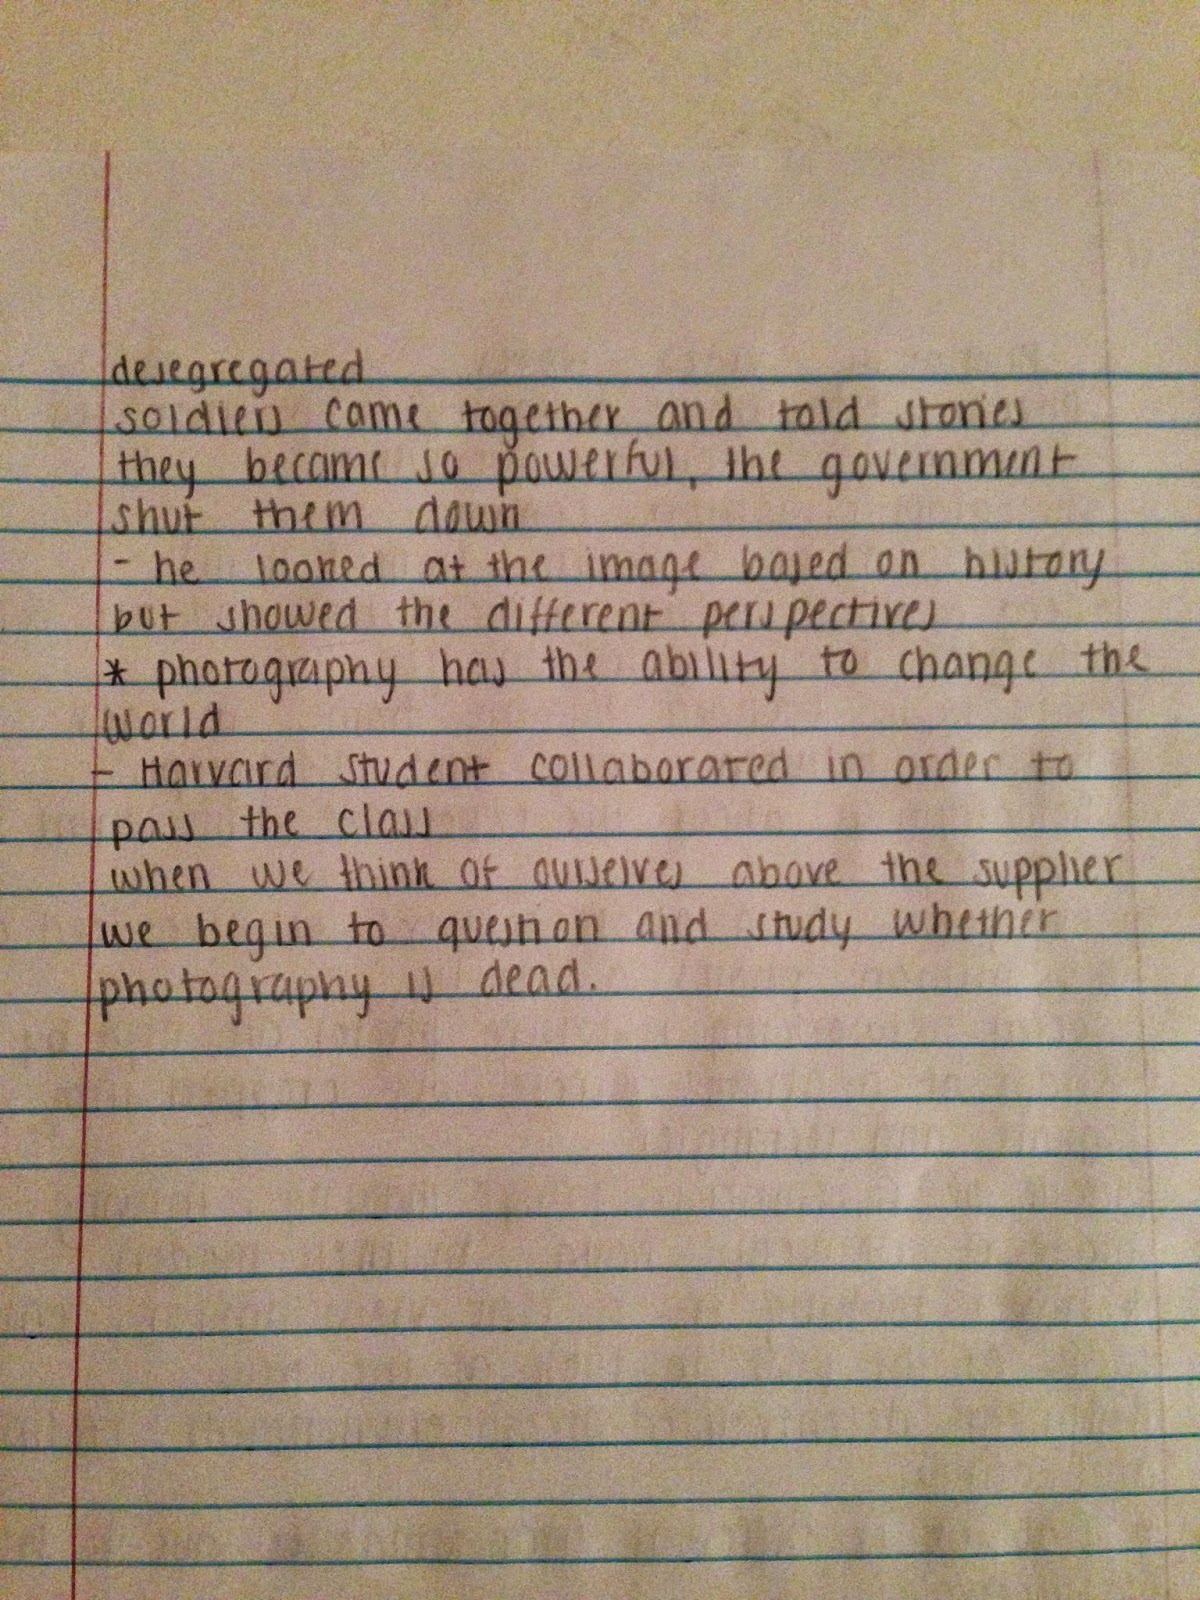 desegregated
soldiers came together and told stories
they became so powerful, the government
shut them down
- he looked at the image based on history
but showed the different perspectives
* photography has the ability to change the
world
- Harvard student collaborated in order to
pass the class
when we think of ourselves above the supplier
we begin to question and study whether
photography is dead.